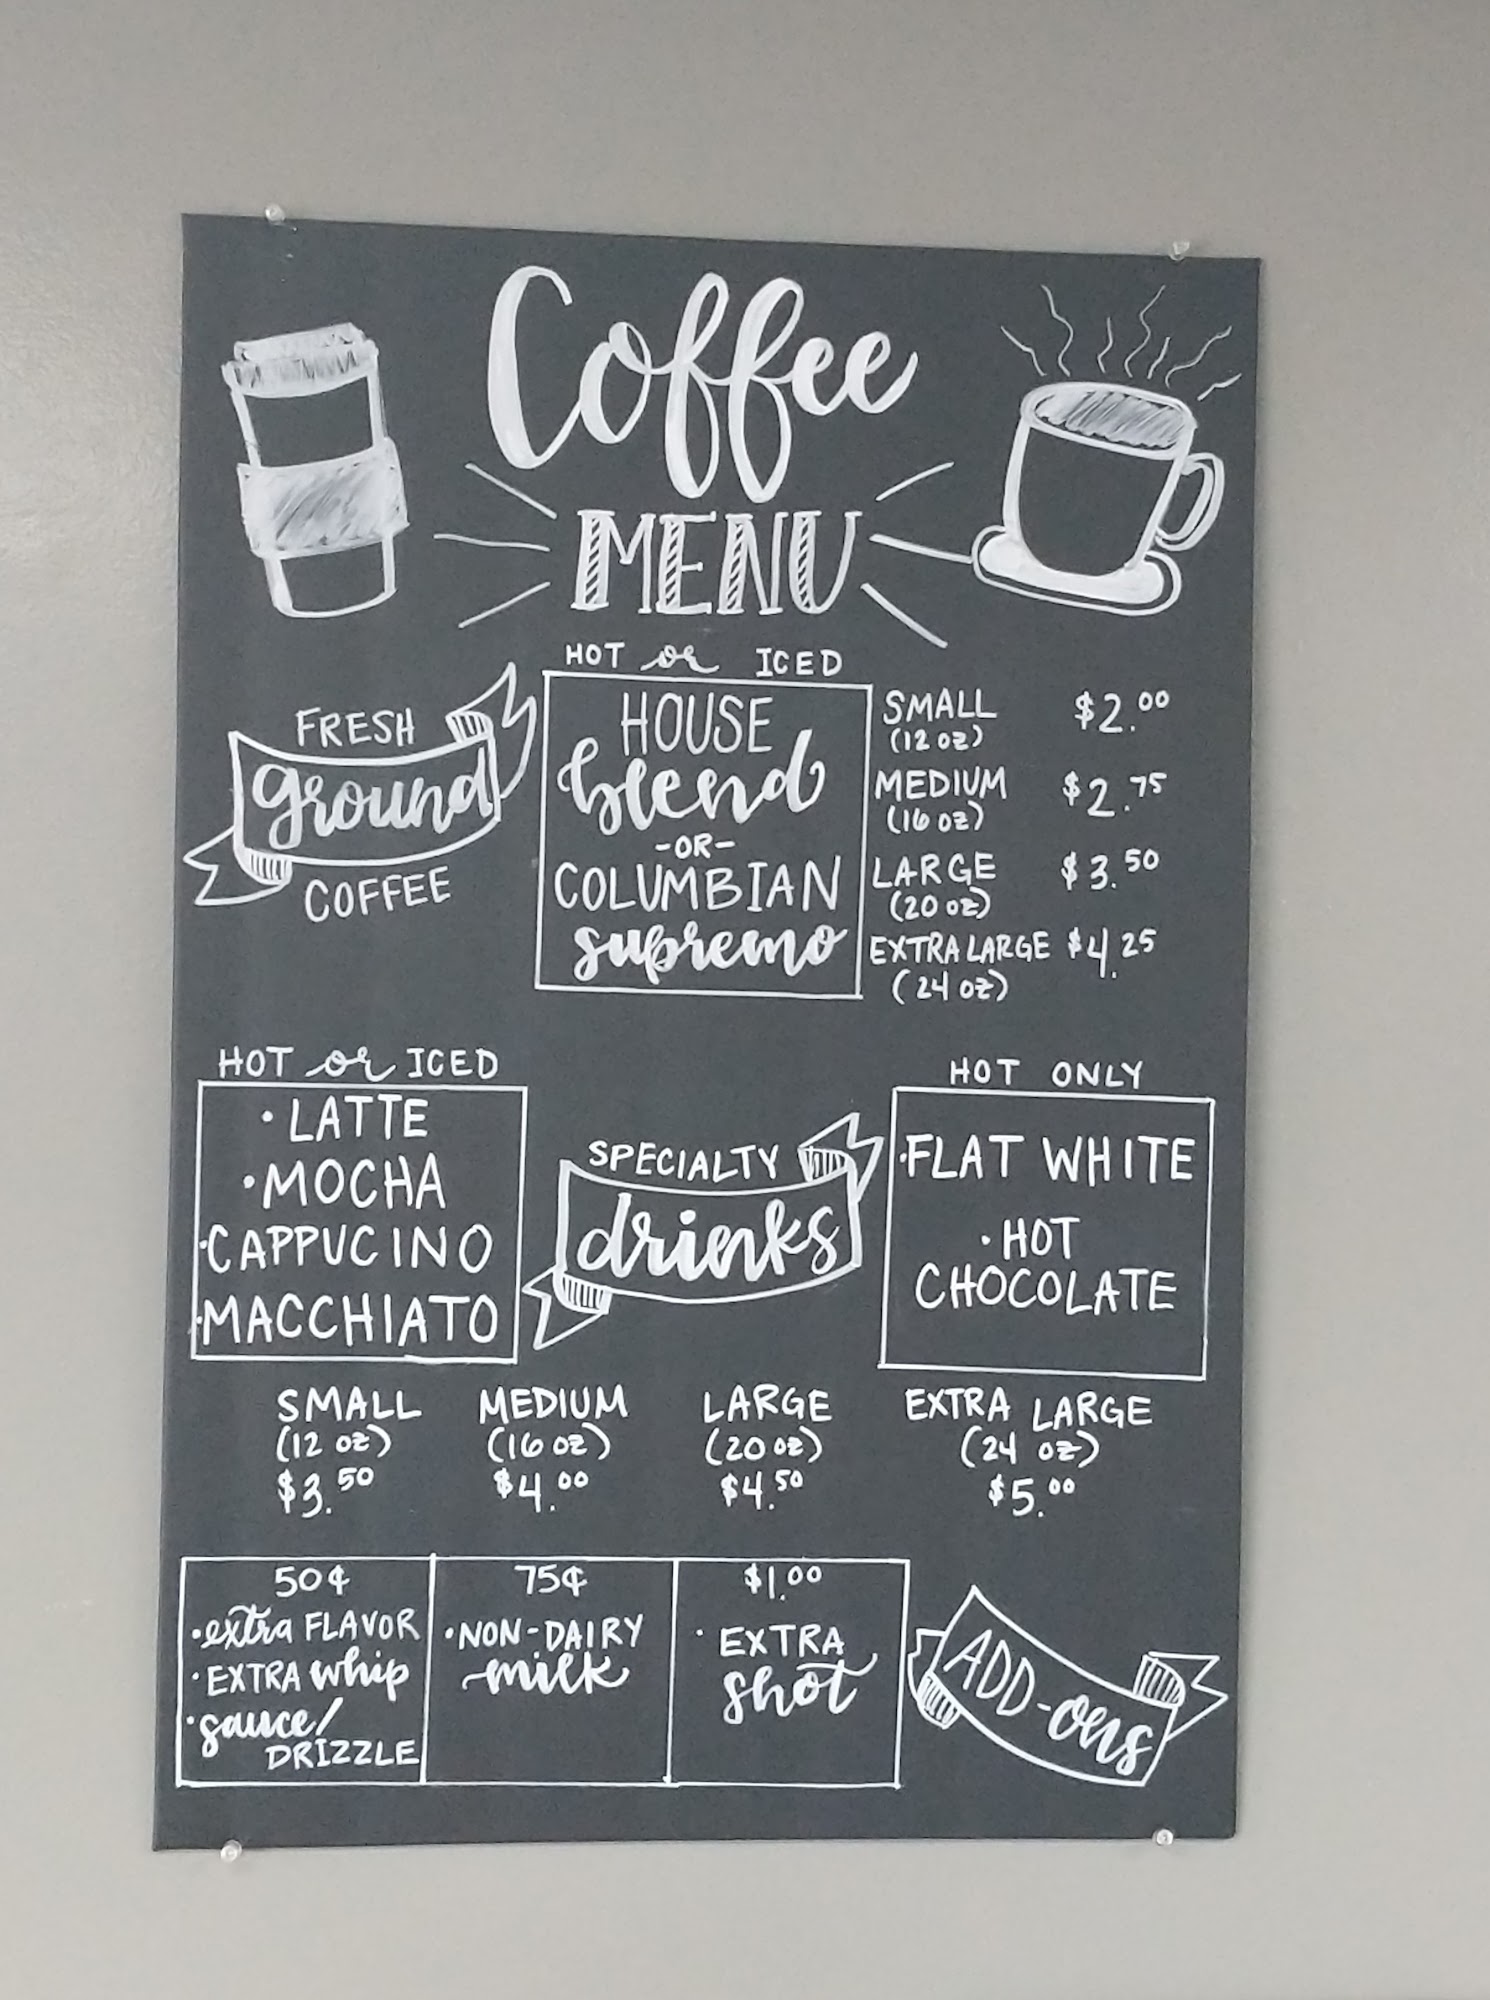 Coffee
MENU
HOT or ICED
FRESH
ground
COFFEE
HOUSE
blend
-OR-
COLUMBIAN
supremo
SMALL $2.00
(12 oz)
MEDIUM $2.75
(16 oz)
LARGE $3.50
(20 oz)
EXTRA LARGE $4.25
(24 oz)
HOT or ICED
• LATTE
• MOCHA
• CAPPUCINO
• MACCHIATO
SPECIALTY
drinks
HOT ONLY
• FLAT WHITE
• HOT
CHOCOLATE
SMALL
(12 oz)
$3.50
MEDIUM
(16 oz)
$4.00
LARGE
(20 oz)
$4.50
EXTRA LARGE
(24 oz)
$5.00
50¢
• extra FLAVOR
• EXTRA whip
• sauce/
DRIZZLE
75¢
• NON-DAIRY
milk
$1.00
• EXTRA
shot
ADD-ons